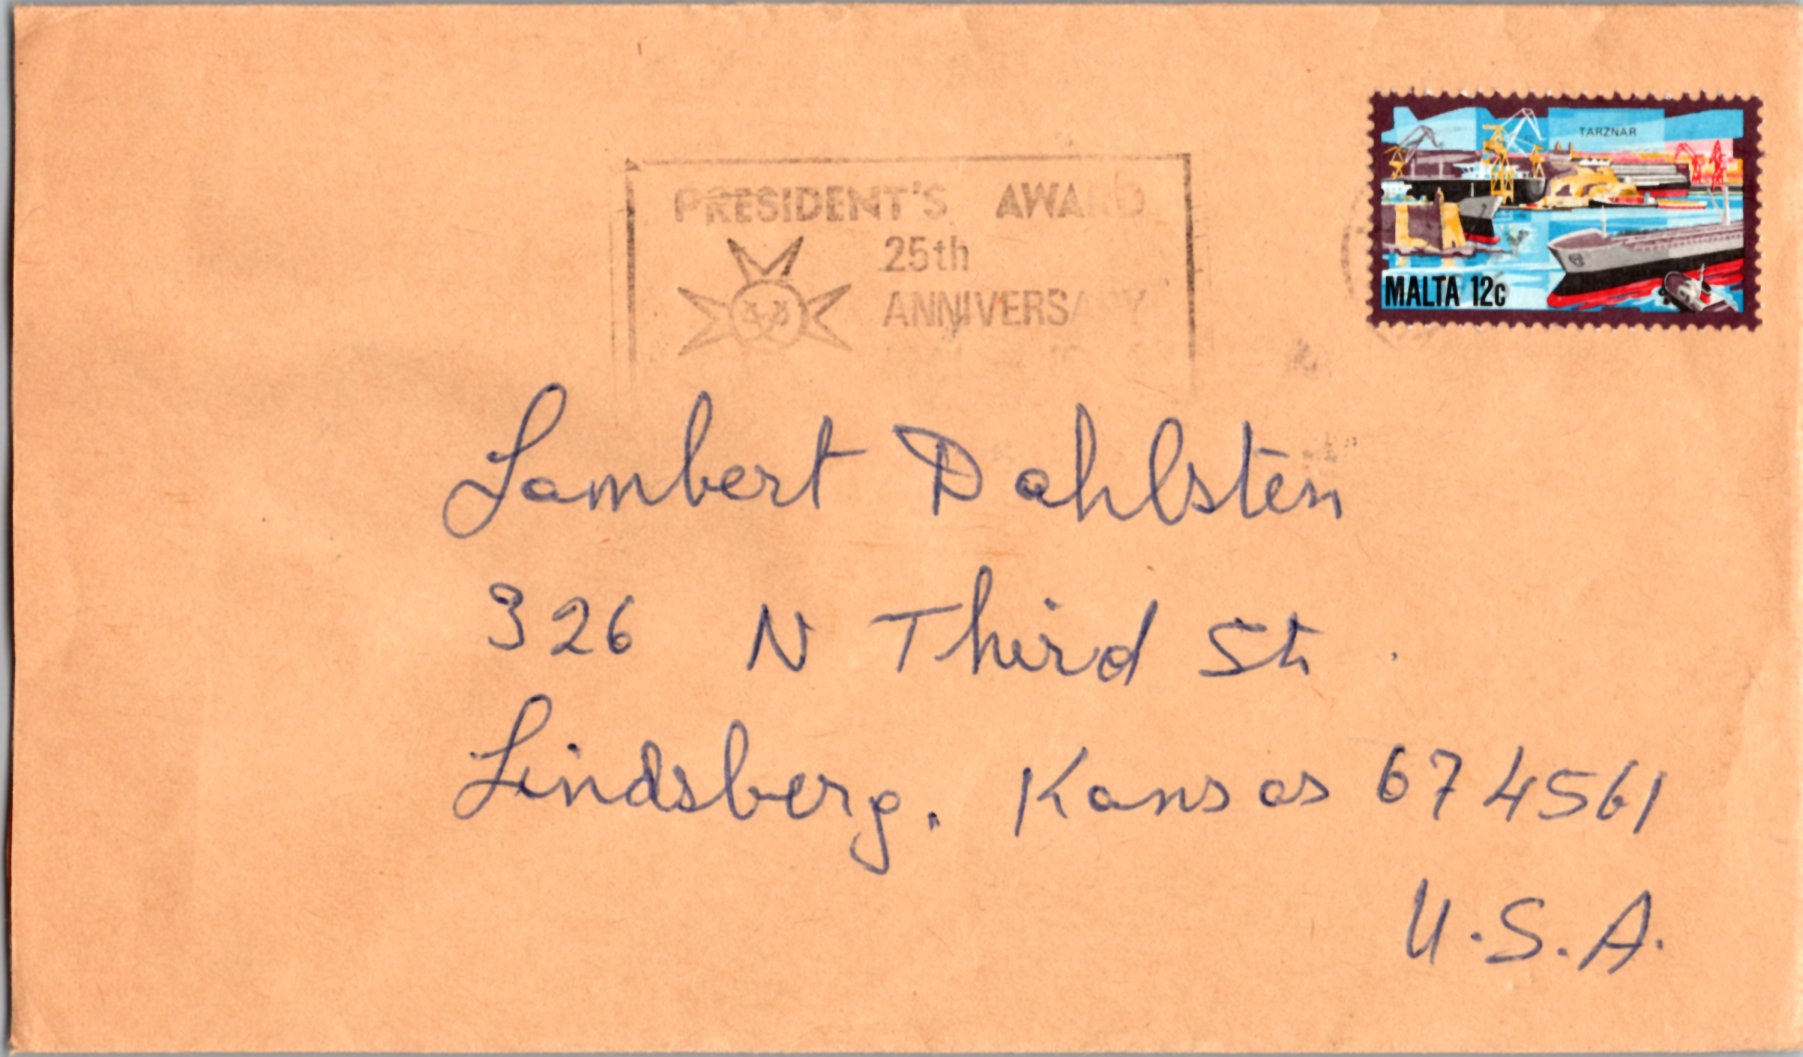 TARZNAR
MALTA 12c
PRESIDENT'S AWARD
25th
ANNIVERSARY
Lambert Dahlsten
326 N Third St.
Lindsberg, Kansas 674561
U.S.A.